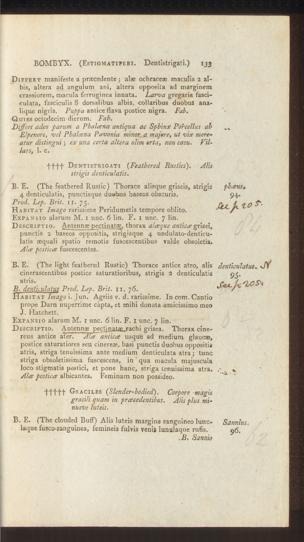 BOMBYX. (ESTIGMATIFERI. Dentistrigati.) 133
DIFFERT manifeste a præcendente; alæ ochraceæ maculis 2 al-
bis, altera ad angulum ani, altera opposita ad marginem
crassiorem, macula ferruginea innata. Larva gregaria fasci-
culata, fasciculis 8 dorsalibus albis, collaribus duobus ana-
lique nigris. Puppa antice flava postice nigra. Fab.
QUIES octodecim dierum. Fab.
Differt adeo parum a Phalæna antiqua ac Sphinx Porcellus ab
Elpenore, vel Phalæna Pavonia minor a majore, ut vix mere-
atur distingui; ex una certa altera olim orta, non casu. Vil-
lars, l. c.
†††† DENTISTRIGATI (Feathered Rustics). Alis
strigis denticulatis.
B. E. (The feathered Rustic) Thorace alisque griseis, strigis
4 denticulatis, punctisque duobus baseos obscuris.
plumo.
94.
Prod. Lep. Brit. 11. 75.
See p. 205.
HABITAT Imago rarissime Peridumetis tempore oblito.
EXPANSIO alarum M. 1 unc. 6 lin. F. 1 unc. 7 lin.
DESCRIPTIO. Antennæ pectinatæ, thorax alæque anticæ grisei,
punctis 2 baseos oppositis, strigisque 4 undulato-denticu-
latis æquali spatio remotis fuscescentibus valde obsoletis.
Alæ posticæ fuscescentes.
B. E. (The light feathered Rustic) Thorace antice atro, alis
cinerascentibus postice saturatioribus, strigis 2 denticulatis
atris.
denticulatus. N
95.
See p. 205.
B. denticulatus Prod. Lep. Brit. 11. 76.
HABITAT Imago i. Jun. Agriis v. d. rarissime. In com. Cantio
prope Darn nuperrime capta, et mihi donata amicissimo meo
J. Hatchett.
EXPANSIO alarum M. 1 unc. 6 lin. F. 1 unc. 7 lin.
DESCRIPTIO. Antennæ pectinatæ rachi grisea. Thorax cine-
reus antice ater. Alæ anticæ usque ad medium glaucæ,
postice saturatiores seu cinereæ, basi punctis duobus oppositis
atris, striga tenuissima ante medium denticulata atra; tunc
striga obsoletissima fuscescens, in qua macula majuscula
loco stigmatis postici, et pone hanc, striga tenuissima atra.
Alæ posticæ albicantes. Feminam non possideo.
††††† GRACILES (Slender-bodied). Corpore magis
gracili quam in præcedentibus. Alis plus mi-
nusve luteis.
B. E. (The clouded Buff) Alis luteis margina sanguineo lunu-
laque fusco-sanguinea, femineis fulvis venis lunulaque rufis.
Sannius.
96.
.B. Sannio